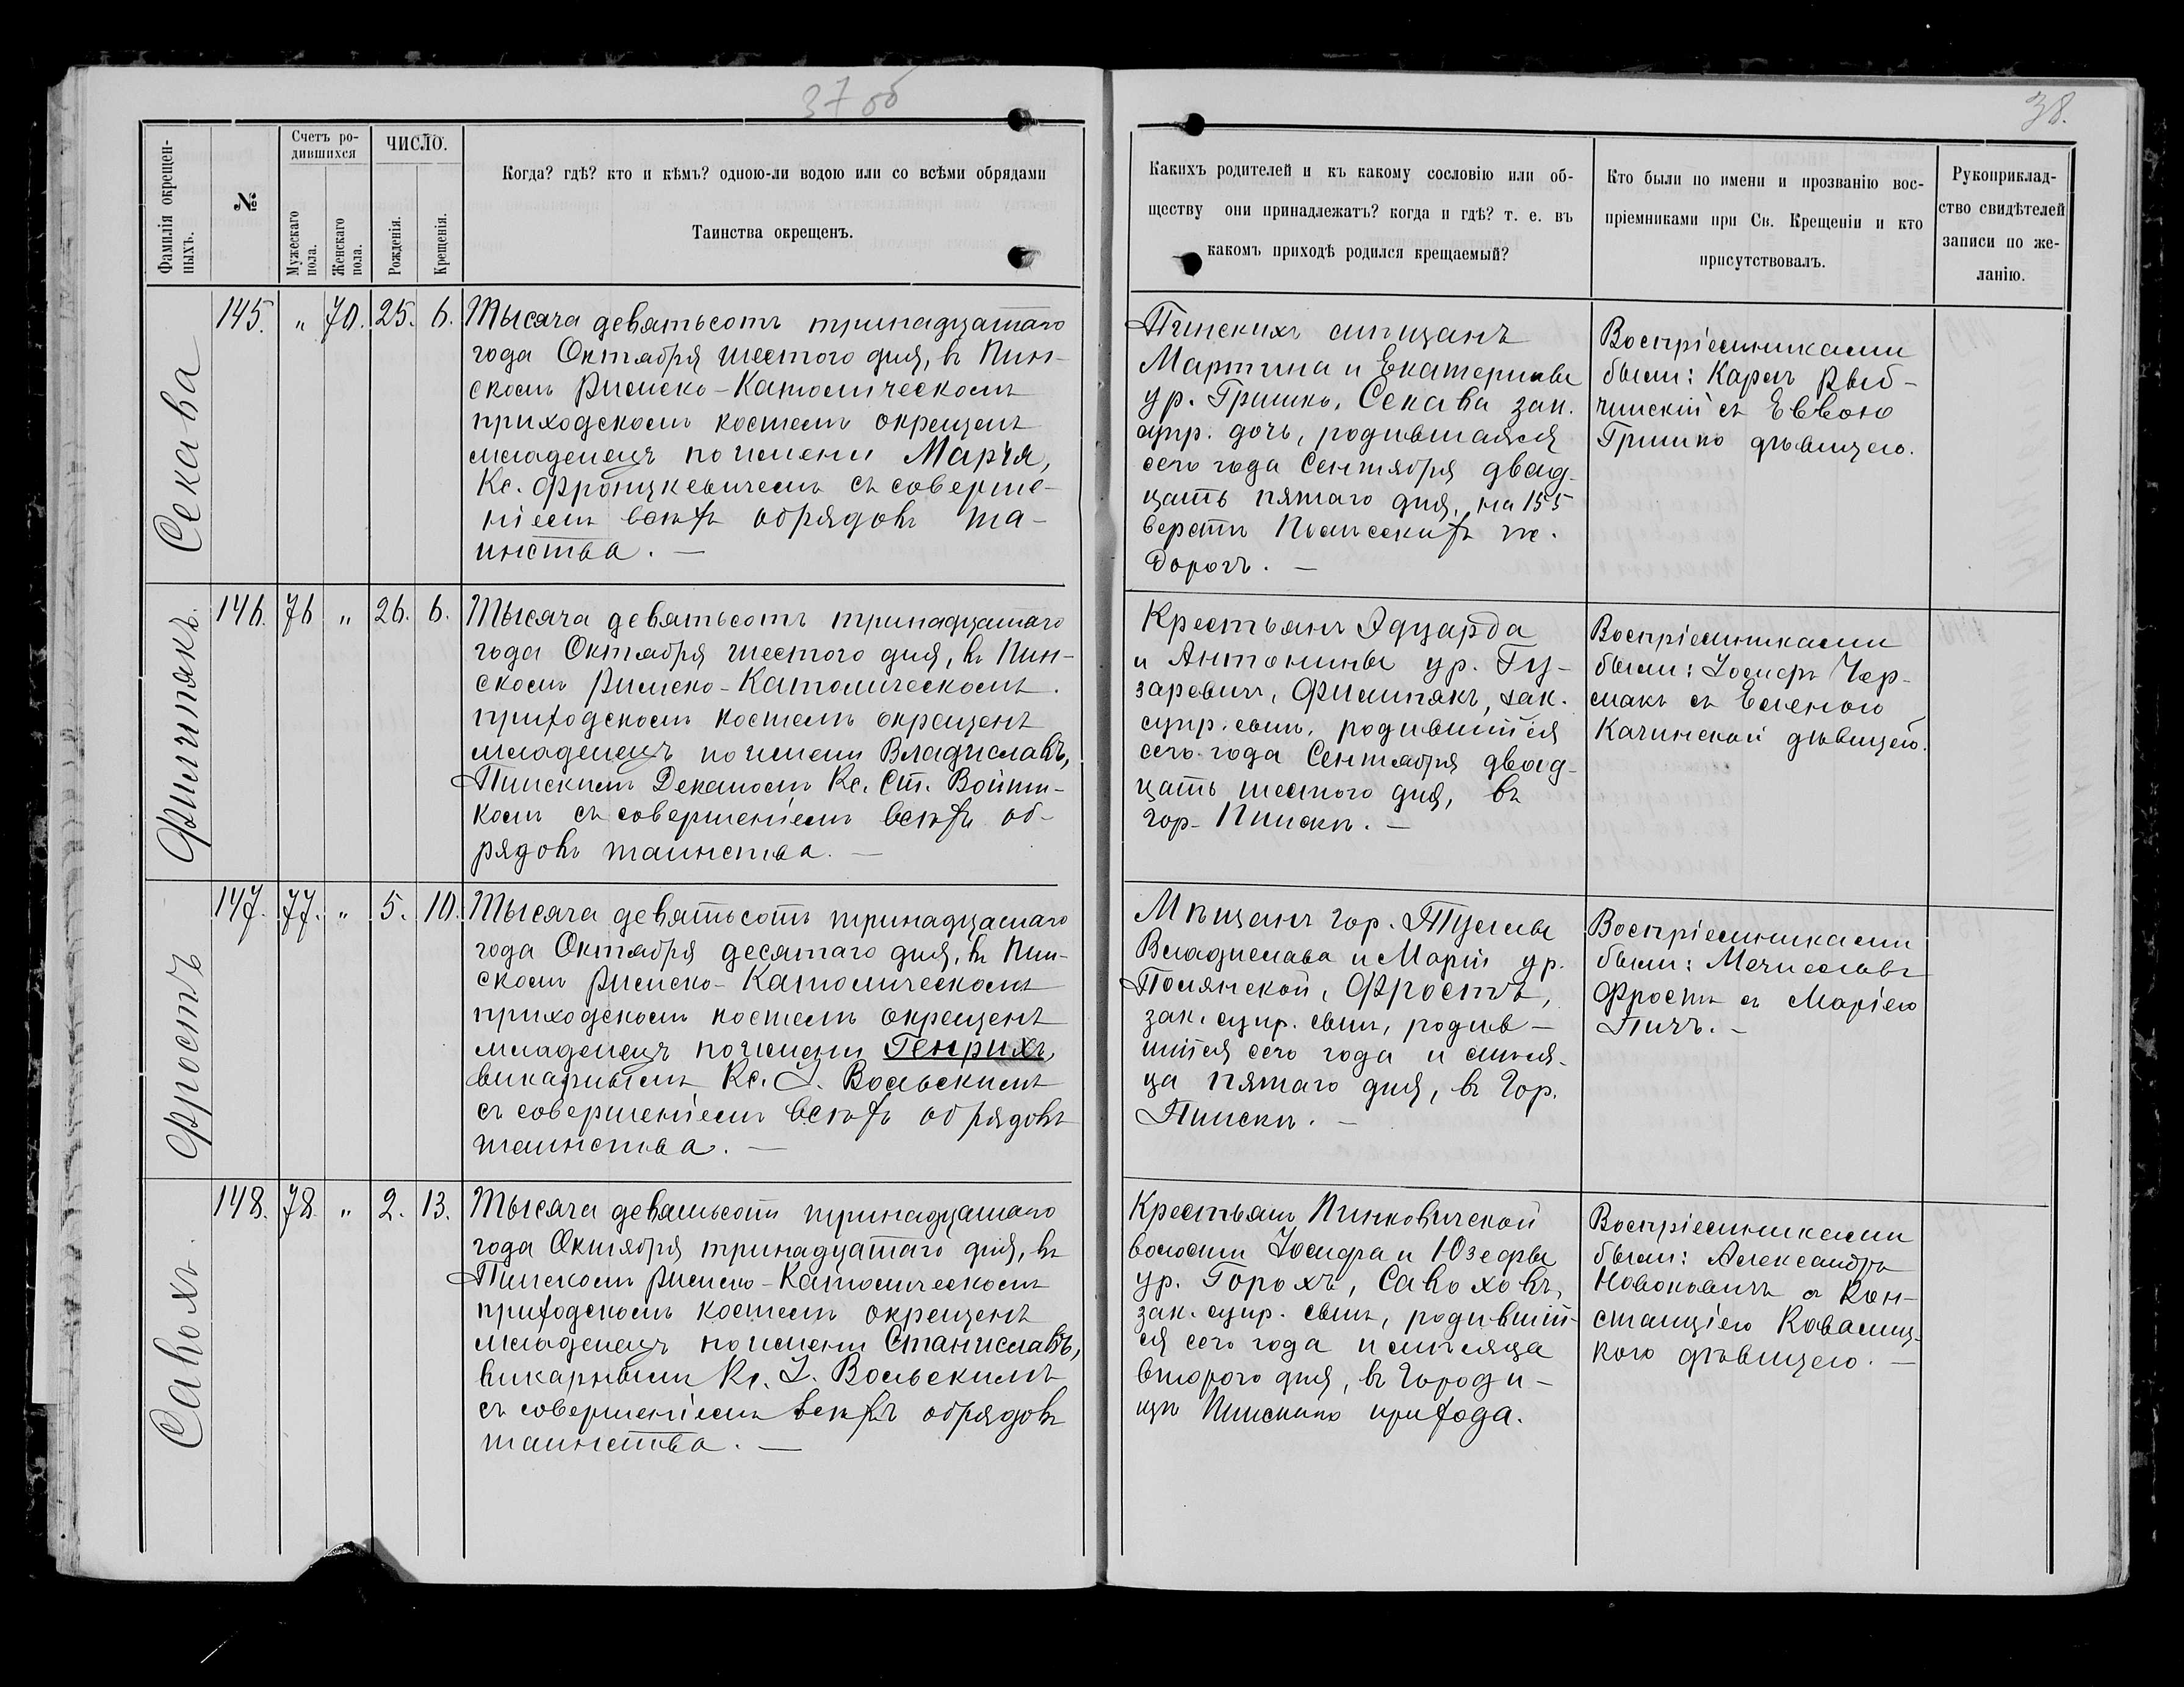 37 об
38.
Фамилія окрещен-
ныхъ.
№
Счетъ ро-
дившихся
Мужескаго
пола.
Женскаго
пола.
ЧИСЛО.
Рожденія.
Крещенія.
Когда? гдѣ? кто и кѣмъ? одною-ли водою или со всѣми обрядами
Таинства окрещенъ.
Какихъ родителей и къ какому сословію или об-
ществу они принадлежатъ? когда и гдѣ? т. е. въ
какомъ приходѣ родился крещаемый?
Кто были по имени и прозванію вос-
пріемниками при Св. Крещеніи и кто
присутствовалъ.
Рукоприклад-
ство свидѣтелей
записи по же-
ланію.
Секава
145. „ 70. 25. 6.
Тысяча девятьсотъ тринадцатаго
года Октября шестого дня, въ Пин-
скомъ Римско-Католическомъ
приходскомъ костелѣ окрещенъ
младенецъ по имени Марія,
Кс. Фронцкевичемъ съ соверше-
ніемъ всѣхъ обрядовъ та-
инства. —
Пинскихъ мѣщанъ
Мартина и Екатерины
ур. Гришко, Секава зак.
супр. дочь, родившаяся
сего года Сентября двад-
цать пятаго дня, на 155
верстѣ Полѣсскихъ ж.
дорогъ. —
Воспріемниками
были: Карлъ Рыб-
чинскій съ Еввою
Гришко дѣвицею.
Филипякъ.
146. 76 „ 26. 6.
Тысяча девятьсотъ тринадцатаго
года Октября шестого дня, въ Пин-
скомъ Римско-Католическомъ
приходскомъ костелѣ окрещенъ
младенецъ по имени Владиславъ,
Пинскимъ Деканомъ Кс. Ст. Войти-
комъ съ совершеніемъ всѣхъ об-
рядовъ таинства. —
Крестьянъ Эдуарда
и Антонины ур. Гу-
заревичъ, Филипякъ, зак.
супр. сынъ, родившійся
сего года Сентября двад-
цать шестого дня, въ
гор. Пинскѣ. —
Воспріемниками
были: Іосифъ Чер-
макъ съ Еленою
Качинской дѣвицею.
Фростъ
147. 77. „ 5. 10.
Тысяча девятьсотъ тринадцатаго
года Октября десятаго дня, въ Пин-
скомъ Римско-Католическомъ
приходскомъ костелѣ окрещенъ
младенецъ по имени Генрихъ,
викарнымъ Кс. І. Вольскимъ
съ совершеніемъ всѣхъ обрядовъ
таинства. —
Мѣщанъ гор.
Владислава и Маріи ур.
Полянской, Фростъ,
зак. супр. сынъ, родив-
шійся сего года и мѣся-
ца пятаго дня, въ гор.
Пинскѣ. —
Воспріемниками
были: Мечиславъ
Фростъ съ Маріею
Пичъ. —
Савохъ.
148. 78. „ 2. 13.
Тысяча девятьсотъ тринадцатаго
года Октября тринадцатаго дня, въ
Пинскомъ Римско-Католическомъ
приходскомъ костелѣ окрещенъ
младенецъ по имени Станиславъ,
викарнымъ Кс. І. Вольскимъ
съ совершеніемъ всѣхъ обрядовъ
таинства. —
Крестьянъ Пинковичской
волости Іосифа и Юзефы
ур. Горохъ, Савоховъ,
зак. супр. сынъ, родившій-
ся сего года и мѣсяца
второго дня, въ Городи-
щѣ Пинскаго прихода.
Воспріемниками
были: Александръ
Новоковичъ съ Кон-
станціею
дѣвицею. —